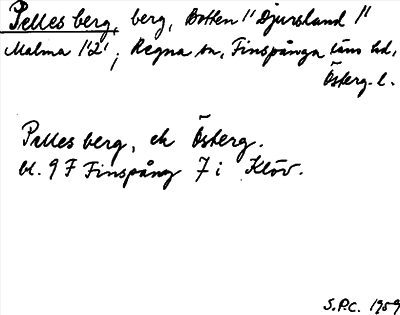 Pellesberg, berg, Botten 1" Djursland 1"
Malma 1'2'; Regna sn, Finspånga läns hd,
Österg. l.
Pellesberg, ek Österg.
bl. 9 F Finspång 7 i Klöv.
S.P.C. 1959